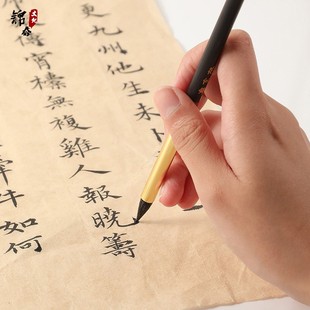 更九州他生未卜
傳宵無複雞人報曉籌
牽牛如何